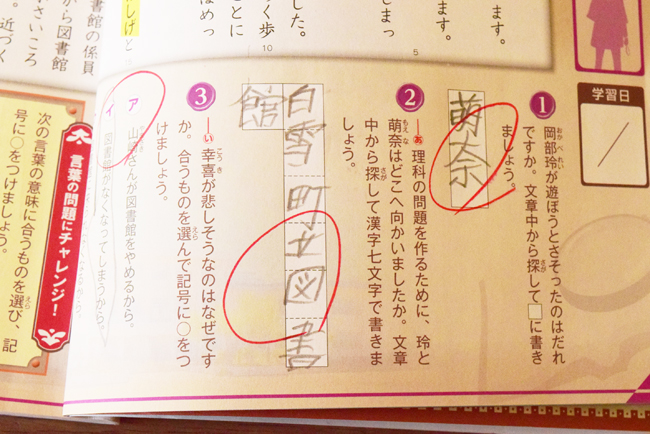 学習日
ます。
ます。
5
しまっ
した。
く歩
10
ことに
はめっ
しげと
書館の係員
から図書館
さいころ
近づく
1 岡部玲が遊ぼうとさそったのはだれ
ですか。文章中から探して□に書き
ましょう。
萌奈
2 あ 理科の問題を作るために、玲と
萌奈はどこへ向かいましたか。文章
中から探して漢字七文字で書きま
しょう。
白雪町立図書
館
3 い 幸喜が悲しそうなのはなぜです
か。合うものを選んで記号に○をつ
けましょう。
ア 山崎さんが図書館をやめるから。
イ 図書館がなくなってしまうから。
言葉の問題にチャレンジ！
次の言葉の意味に合うものを選び、記
号に○をつけましょう。